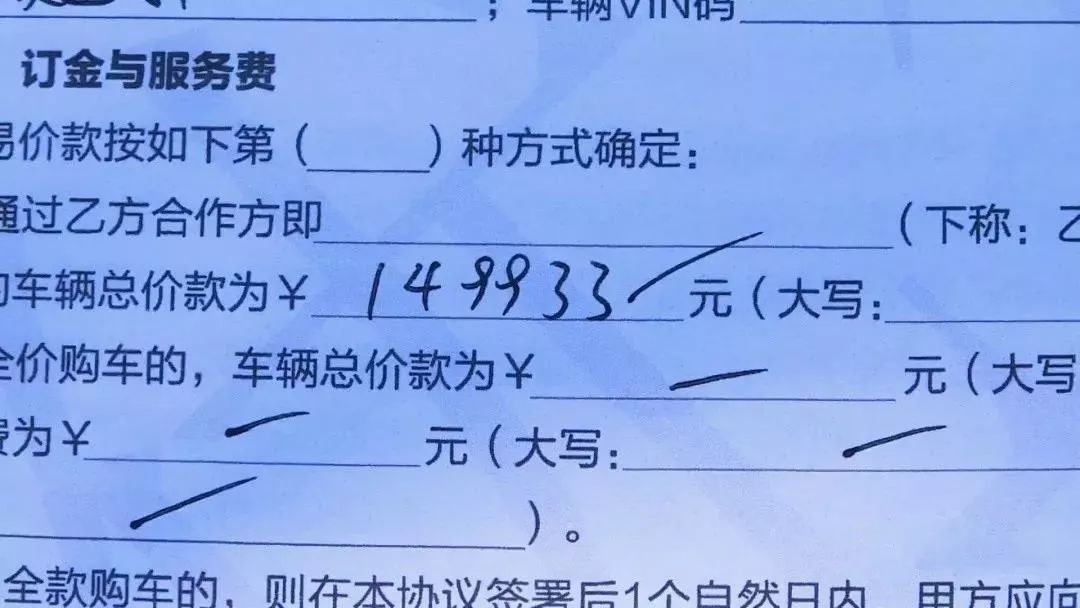 ；车辆VIN码
订金与服务费
易价款按如下第（____）种方式确定：
通过乙方合作方即____（下称：乙
的车辆总价款为￥149933元（大写：
全价购车的，车辆总价款为￥ — 元（大写
费为￥ — 元（大写： —
）。
全款购车的，则在本协议签署后1个自然日内，甲方应向